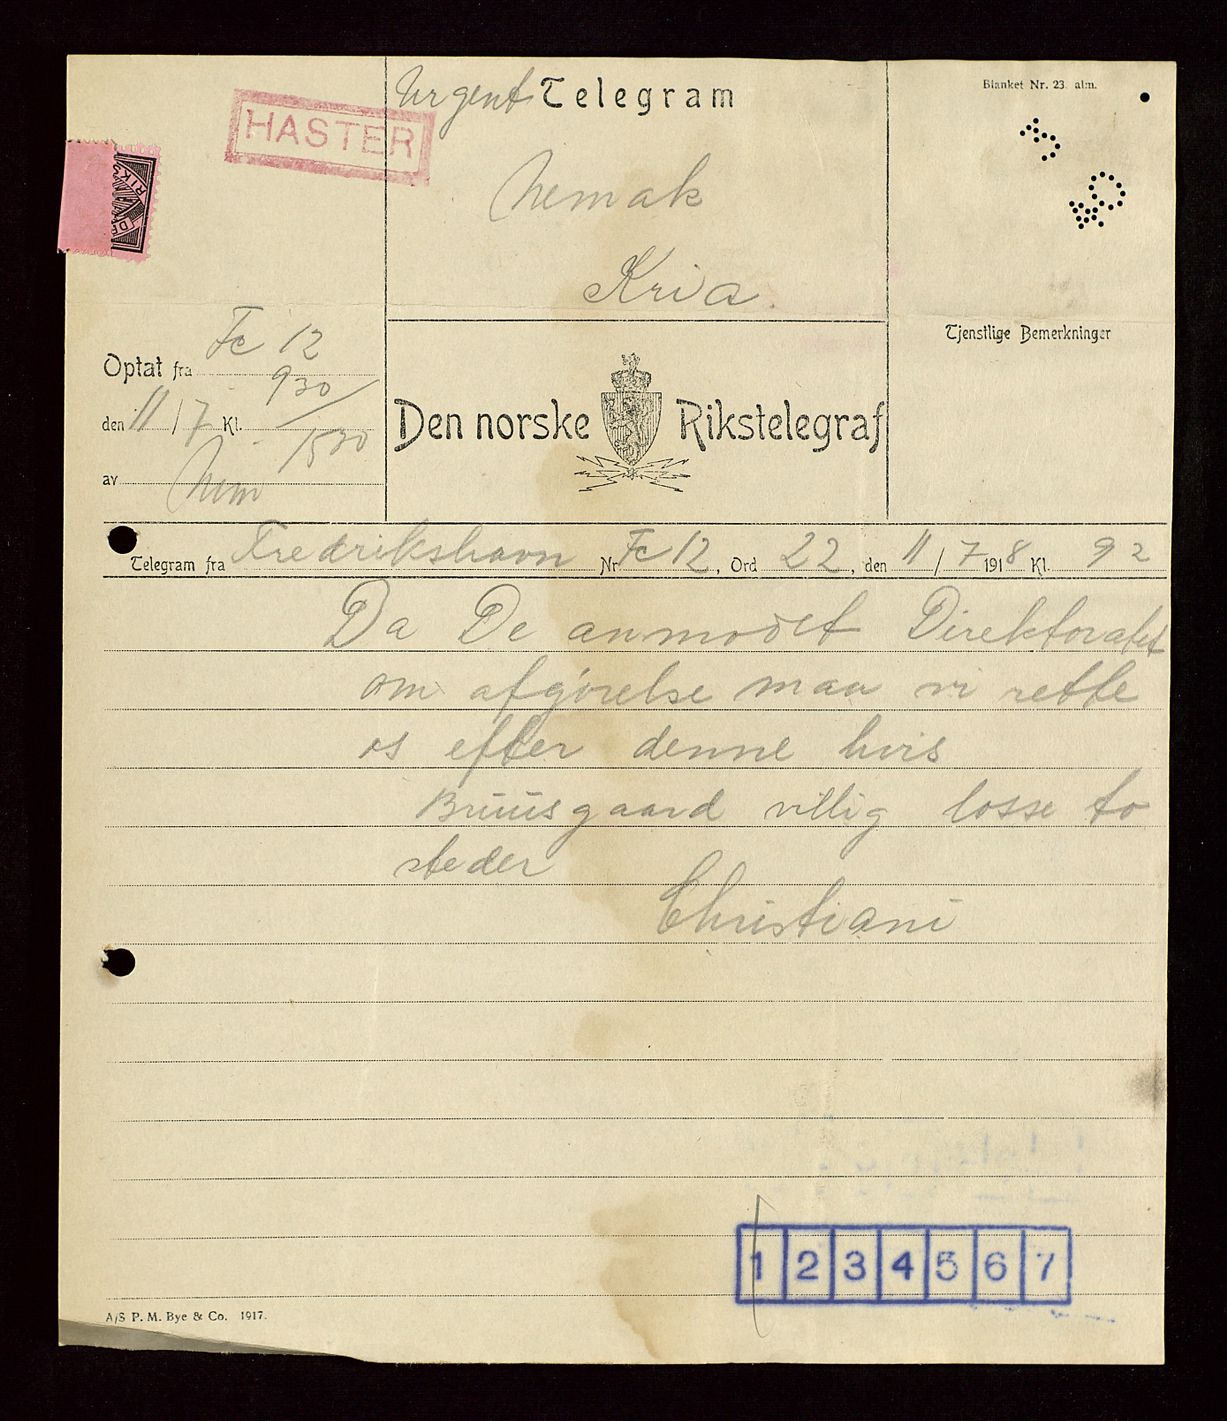 Urgent Telegram
Blanket Nr. 23. alm.
HASTER
Nemak
Kria
Tjenstlige Bemerkninger
Optat fra Fc 12
930
den 11/7 Kl.
1530
av
Den norske Rikstelegraf
Telegram fra Fredrikshavn Nr. Fc 12, Ord 22, den 11/7 1918 Kl. 92
Da De anmodet Direktoratet
om afgjørelse maa vi rette
os efter denne hvis
Bruusgaard villig losse to
steder
Christiani
1 2 3 4 5 6 7
A/S P. M. Bye & Co. 1917.